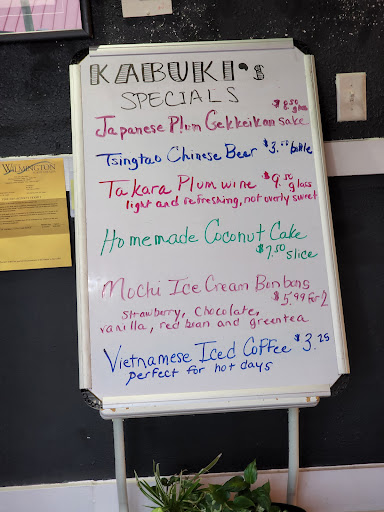 KABUKI's
SPECIALS
$8.50 glass
Japanese Plum Gekkeikan Sake
Tsingtao Chinese Beer $3.00 bottle
Takara Plum wine $9.50 glass
light and refreshing, not overly sweet
Homemade Coconut Cake
$7.50 slice
Mochi Ice Cream Bonbons
$5.99 for 2
Strawberry, Chocolate,
vanilla, red bean and greentea
Vietnamese Iced Coffee $3.25
perfect for hot days
WILMINGTON